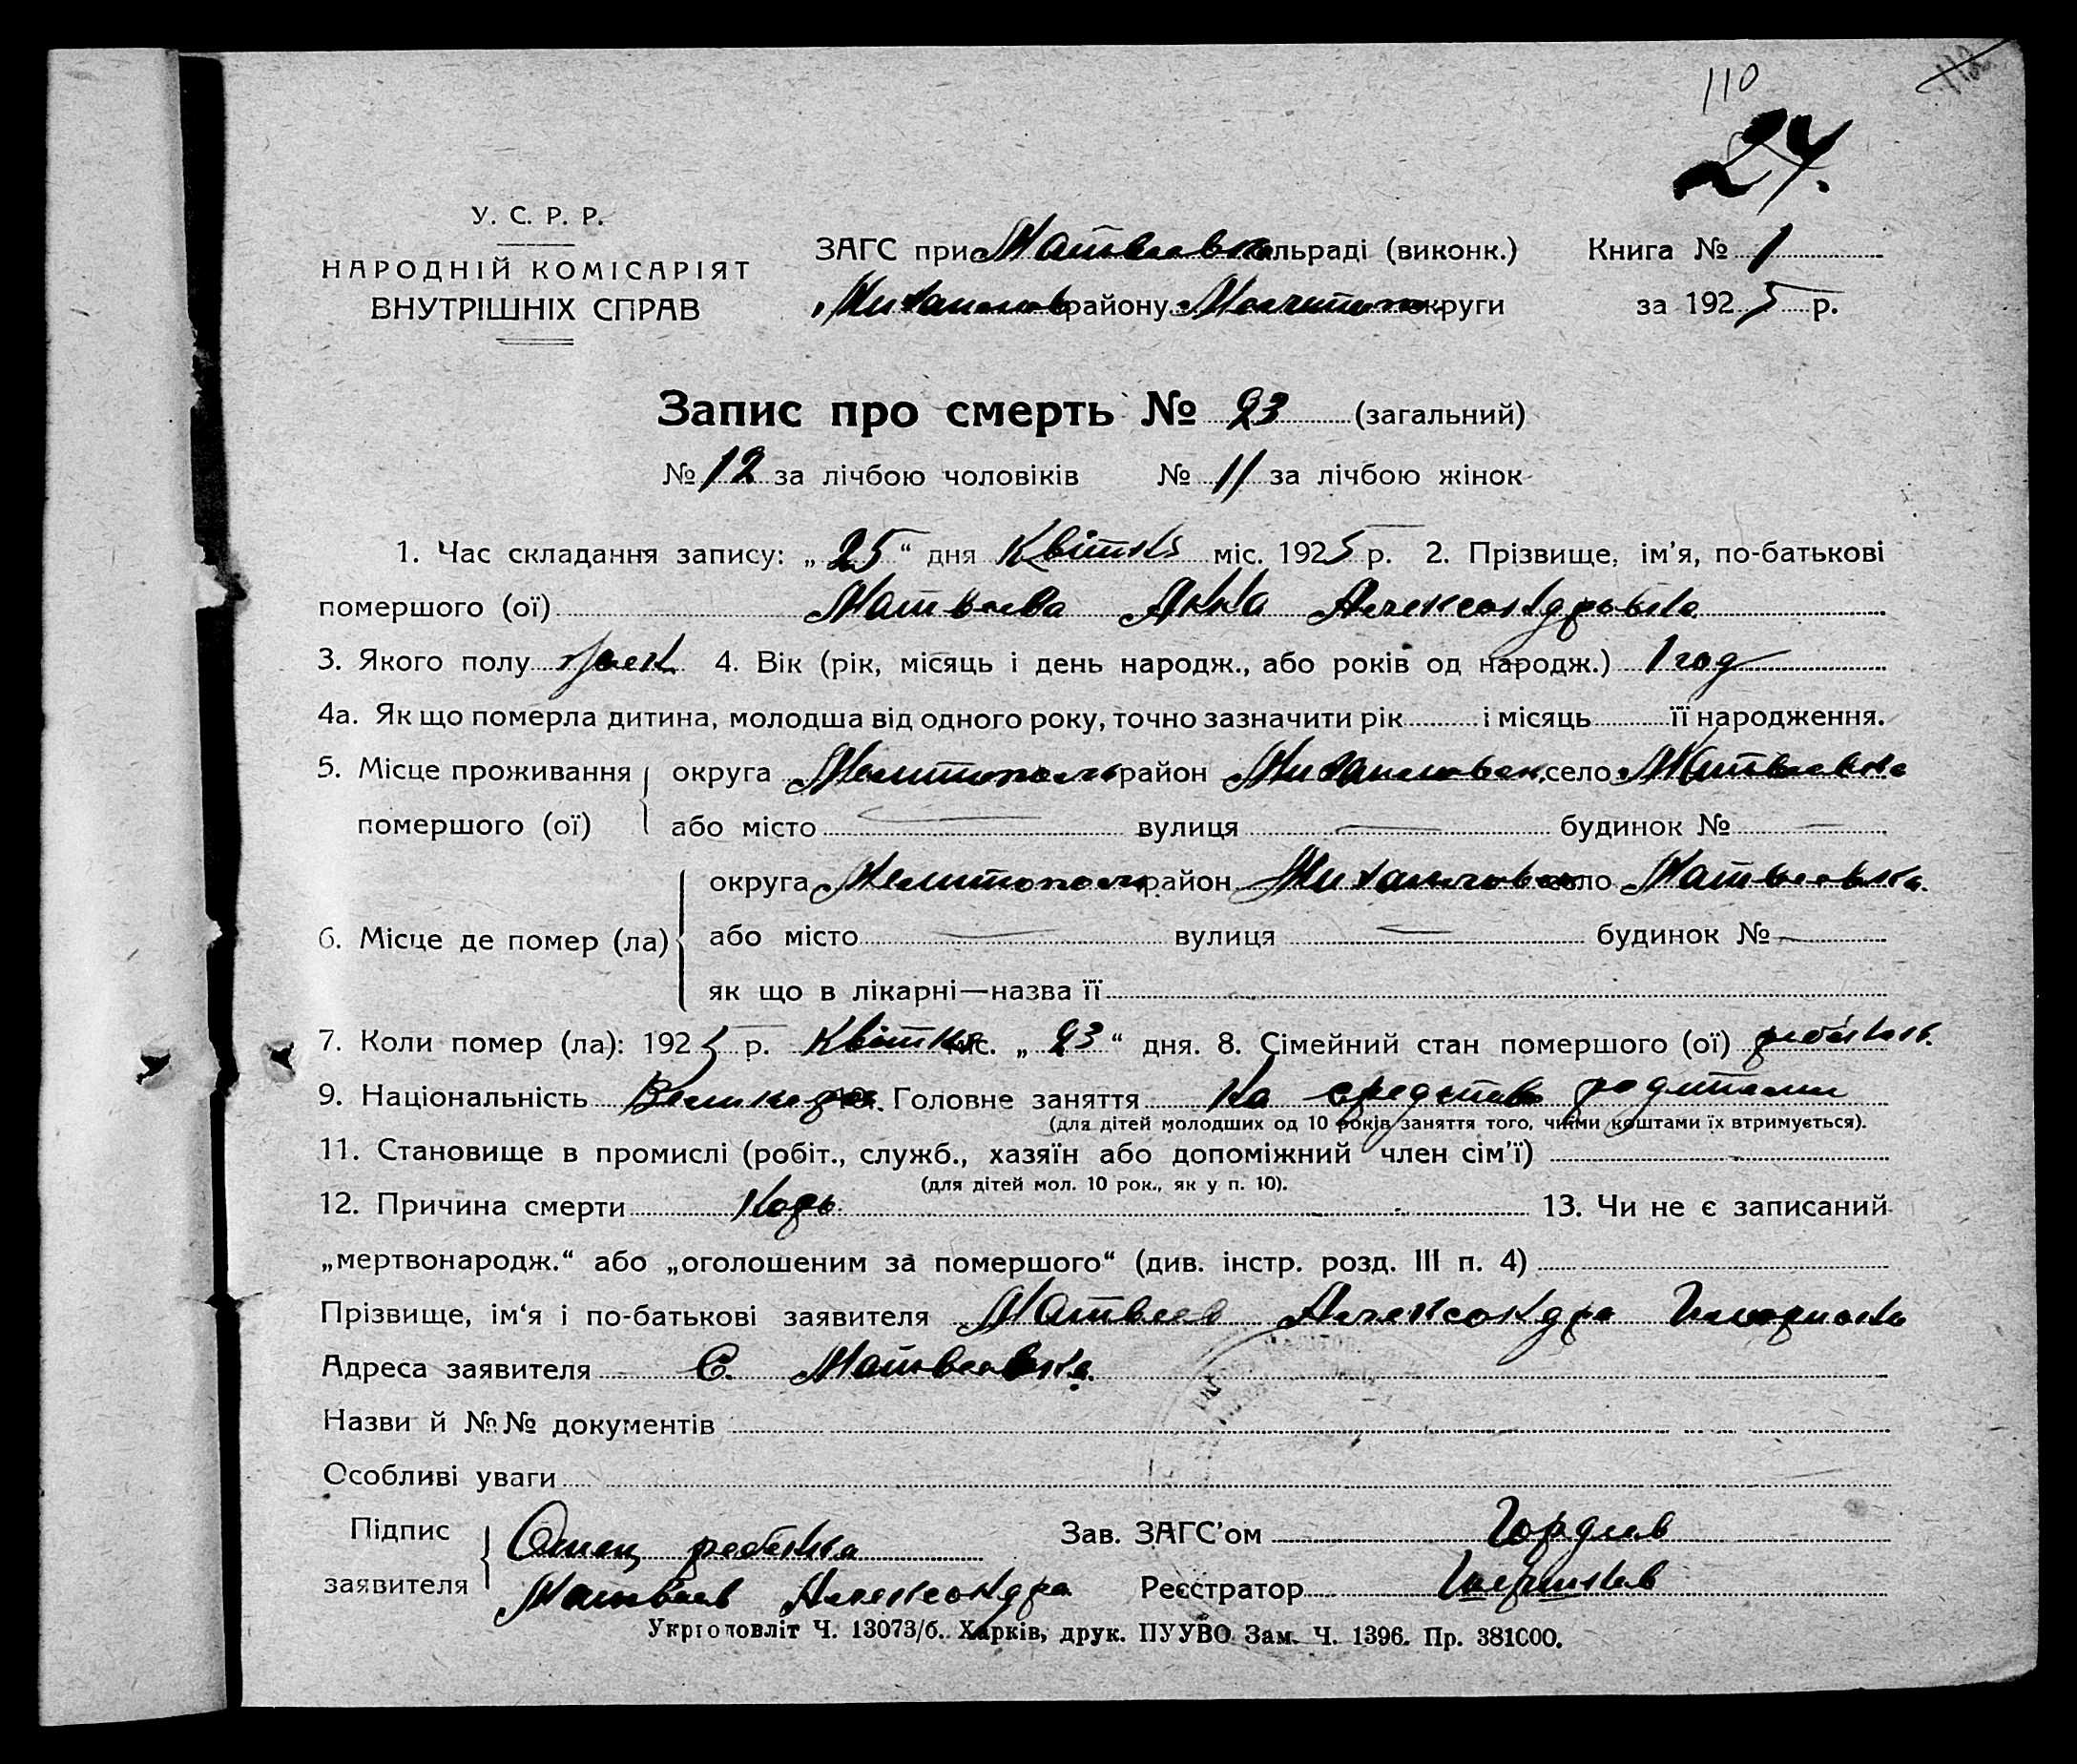 110
24.
У. С. Р. Р.
НАРОДНІЙ КОМІСАРІЯТ
ВНУТРІШНІХ СПРАВ
ЗАГС при Матвеевкольраді (виконк.) Книга № 1
Михайлов району Мелитоп округи за 1925 р.
Запис про смерть № 23 (загальний)
№ 12 за лічбою чоловіків № 11 за лічбою жінок
1. Час складання запису: „25“ дня Квітня міс. 1925 р. 2. Прізвище, ім’я, по-батькові
помершого (ої) Матвеева Анна Александровна
3. Якого полу женск 4. Вік (рік, місяць і день народж., або років од народж.) 1 год
4а. Як що померла дитина, молодша від одного року, точно зазначити рік і місяць її народження.
5. Місце проживання округа Мелитополь район Михайловск. село Матвеевка
помершого (ої) або місто — вулиця — будинок № —
округа Мелитополь район Михайловск село Матвеевка.
6. Місце де помер (ла) або місто — вулиця — будинок № —
як що в лікарні—назва її
7. Коли помер (ла): 1925 р. Квітня міс. „23“ дня. 8. Сімейний стан помершого (ої) ребёнок.
9. Національність Великор 10. Головне заняття На средства родители
(для дітей молодших од 10 років заняття того, чиїми коштами їх втримується).
11. Становище в промислі (робіт., служб., хазяїн або допоміжний член сім’ї)
(для дітей мол. 10 рок., як у п. 10).
12. Причина смерти Корь 13. Чи не є записаний
„мертвонародж.“ або „оголошеним за помершого“ (див. інстр. розд. III п. 4)
Прізвище, ім‘я і по-батькові заявителя Матвеев Александра
Адреса заявителя С. Матвеевка.
Назви й №№ документів
Особливі уваги
Підпис Отец ребёнка Зав. ЗАГС’ом Гордеев
заявителя Матвеев Александра Реєстратор
Укрголовліт Ч. 13073/б. Харків, друк. ПУУВО Зам. Ч. 1396. Пр. 381000.